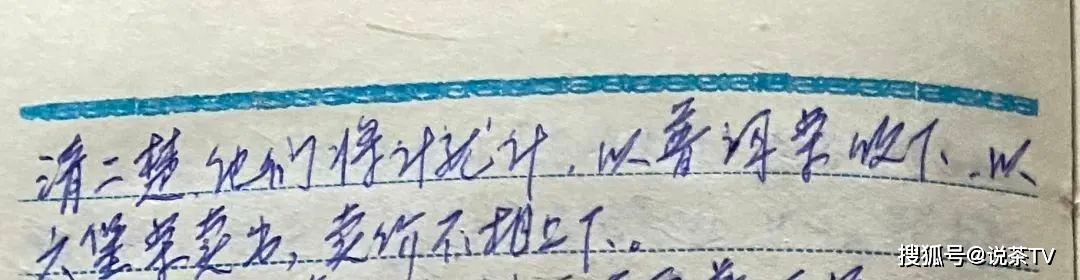 清二楚，他们将计就计，以普洱茶收下，以
六堡茶卖出，卖价不相上下。
搜狐号@说茶TV